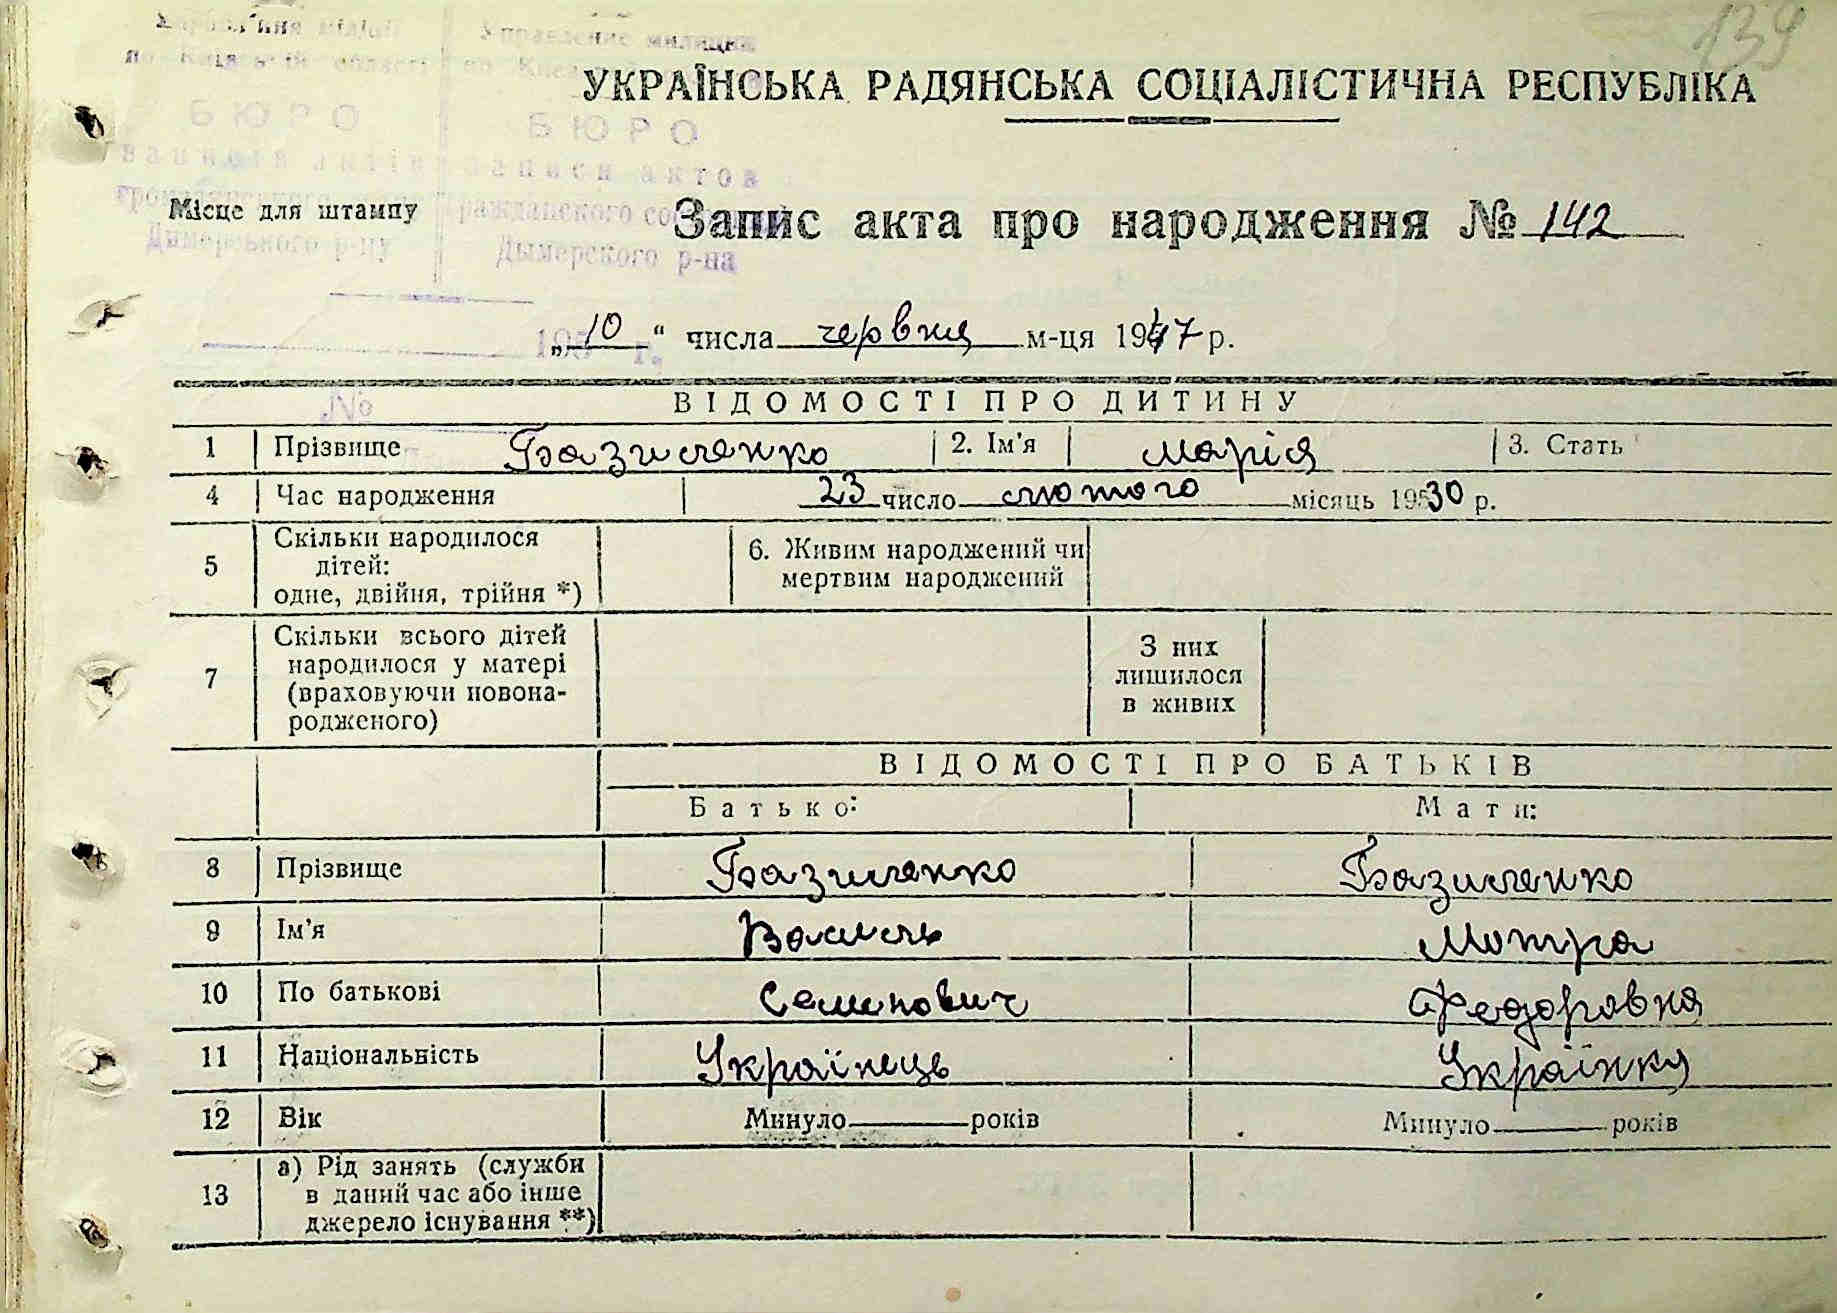 139
Управління міліції Управление милиции
по Київській області по Киевской
УКРАЇНСЬКА РАДЯНСЬКА СОЦІАЛІСТИЧНА РЕСПУБЛІКА
БЮРО БЮРО
записів актів записи актов
громадянського гражданского
Місце для штампу
Запис акта про народження № 142
Димерського р-ну Дымерского р-на
195 г.
„10“ числа червня м-ця 1947 р.
№
ВІДОМОСТІ ПРО ДИТИНУ
1 Прізвище Базиленко 2. Ім'я Марія 3. Стать
4 Час народження 23 число лютого місяць 1930 р.
5 Скільки народилося дітей: одне, двійня, трійня *) 6. Живим народжений чи мертвим народжений
7 Скільки всього дітей народилося у матері (враховуючи новона-родженого) З них лишилося в живих
ВІДОМОСТІ ПРО БАТЬКІВ
Батько: Мати:
8 Прізвище Базиленко Базиленко
9 Ім'я Василь Мотра
10 По батькові Семенович Федоровна
11 Національність Українець Українка
12 Вік Минуло років Минуло років
13 а) Рід занять (служби в даний час або інше джерело існування **)